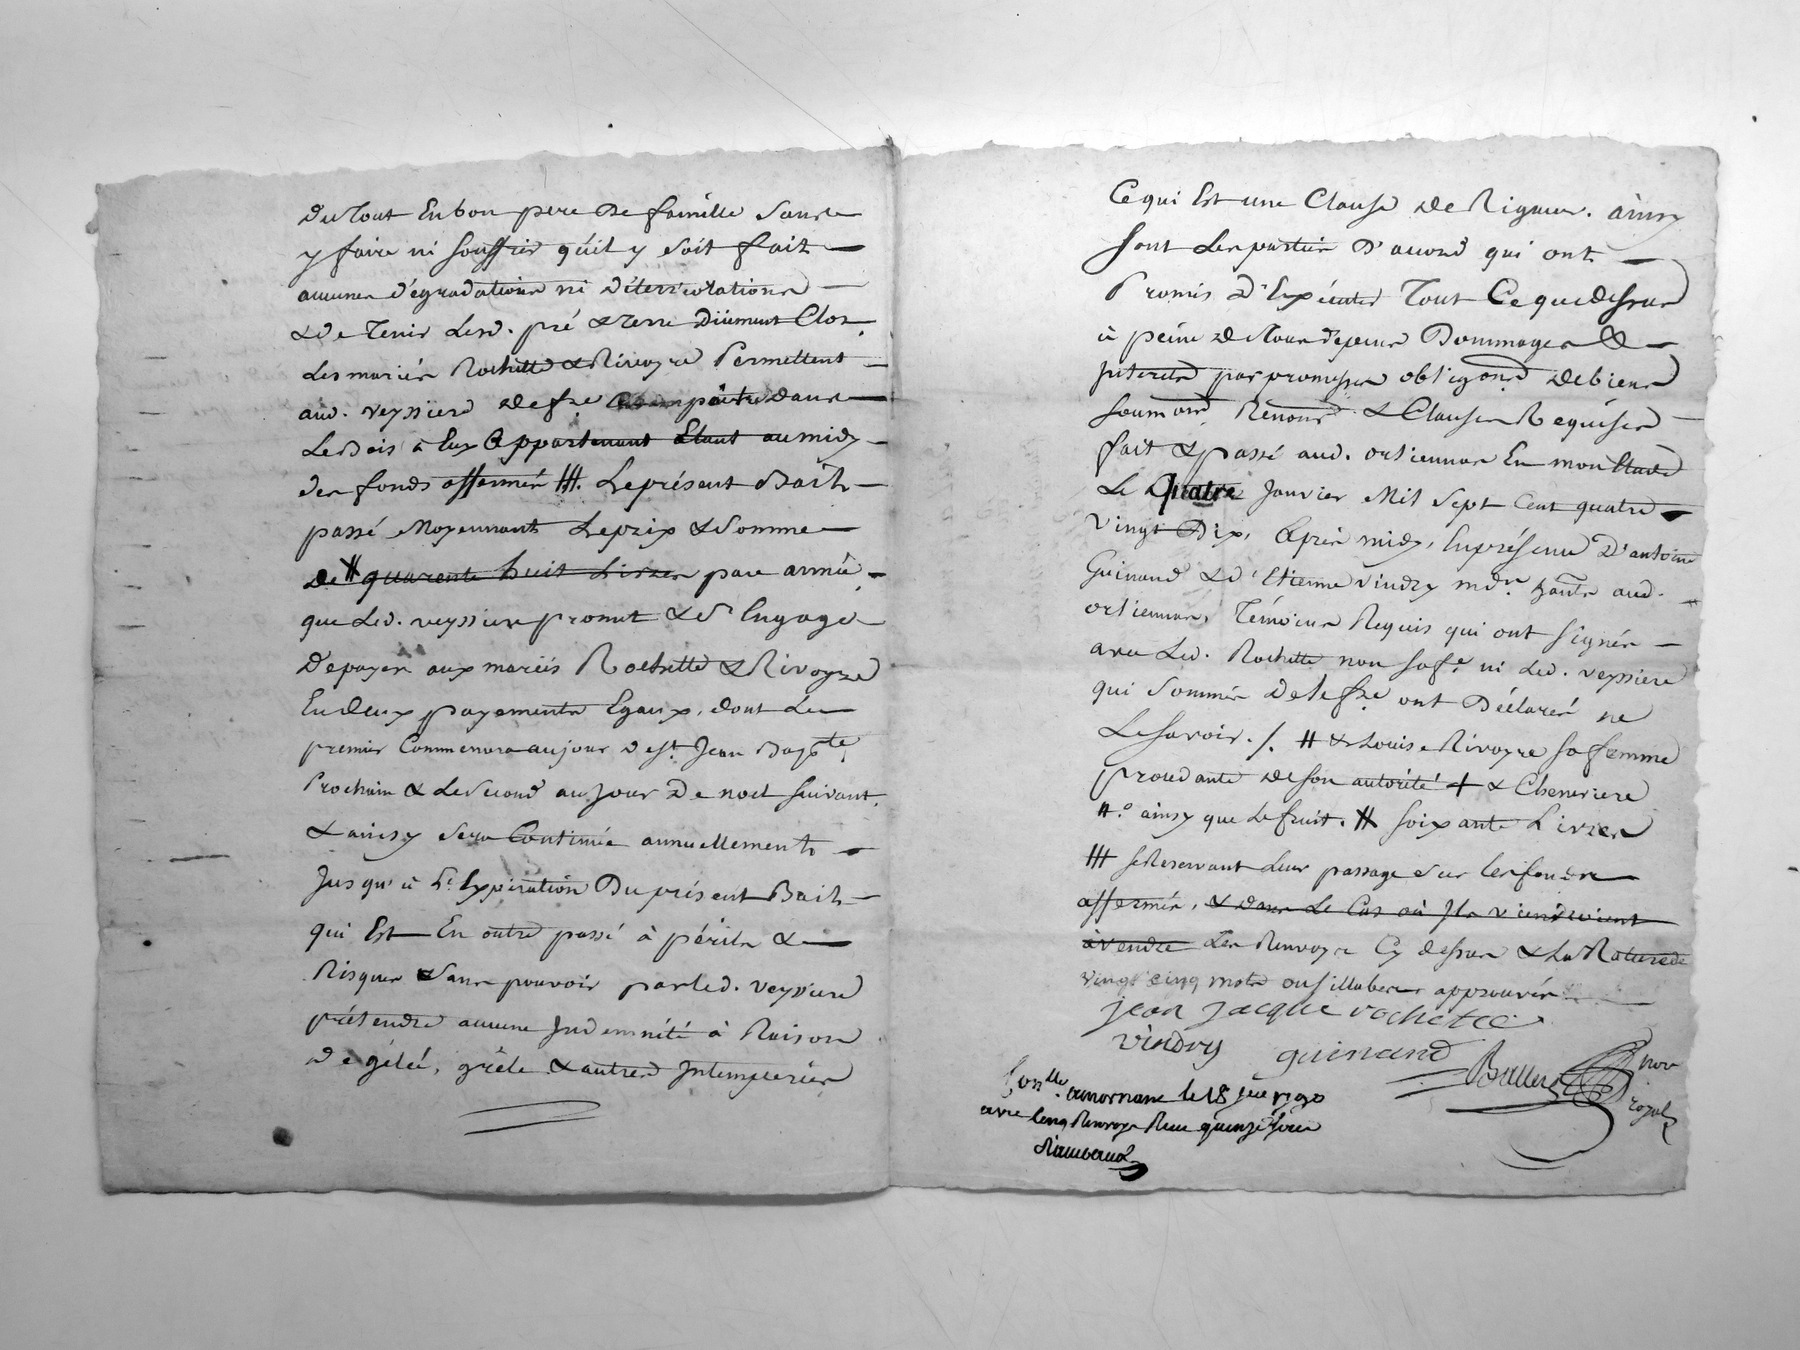 du Tout En bon pere De famille Sans
y faire ni souffrir qu'il y soit fait
aucunes d'égradations ni déterriorations
& de Tenir Lesd. pré & terre Düement Clos,
Les mariés Rochette & Rivoyre Permettent
aud. Veyssiere de fre paitre dans
Le Bois à Eux Appartenant Etant au midy
des fonds affermés ###. Le présent Bail
passé Moyennant Le prix & Somme
de # quarente huit Livres par année
que Led. veyssiere promet & S'Engage
De payer aux mariés Rochette & Rivoyre
En deux payements Egaux, dont Le
premier Commencera au jour de st. Jean Bapte,
Prochain & Le Second au Jour De noel suivant,
& ainsy sera Continué annuellement
Jusqu'à L'Expiration Du présent Bail
qui Est En outre passé à périls &
Risques & Sans pouvoir par led. Veyssiere
prétendre aucune Indemnité à Raison
De gélée, grêle & autres Intemperies
Ce qui Est une Clause de Rigueur. ainsy
Sont Les parties D'accord qui ont
Promis D'Expécuter Tout Ce que dessus
à peine de Tous depens Dommages &
Interets par promesses obligond de biens
soumond Renond & Clauses Requises
fait & passé aud. ortiennas En mon Etude
Le Quatre Janvier Mil Sept Cent quatre
Vingt Dix, Après midy, En présence D'antoine
Guinand & d'Etienne Vindry mdrs. hants aud.
ortiennas, Témoins Requis qui ont signés
avec Led. Rochette non sa fe. ni Led. Veyssiere
qui Sommés de le fre ont Déclarés ne
Le Savoir ./. # & Louise Rivoyre sa femme
procédante de son autorité + & Cheneviere
#° ainsy que Le fruit. # soixante Livres
### se Reservant Leur passage sur les fonds
affermés, & dans Le Cas où Ils viendroient
à vendre Les Renvoys Cy dessus & La Rature de
vingt cinq mots ou sillabes approuvés
jean jacque rochette
vindry guinand Baller nore
royal
Conllé. a mornant le 18 jer 1790
avec cinq Renvoys Recu quinze sous
Rambaud